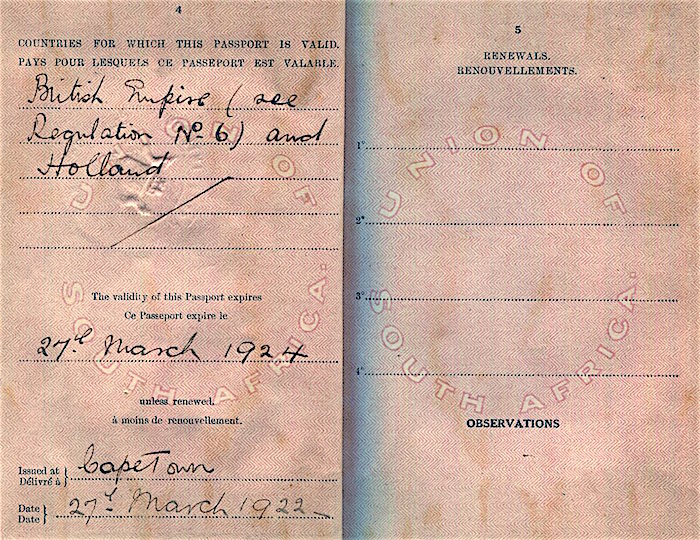 4
COUNTRIES FOR WHICH THIS PASSPORT IS VALID.
PAYS POUR LESQUELS CE PASSEPORT EST VALABLE.
British Empire (see
Regulation No. 6) and
Holland
UNION OF
SOUTH AFRICA.
The validity of this Passport expires
Ce Passeport expire le
27th March 1924
unless renewed.
à moins de renouvellement.
Issued at } CapeTown
Délivré à
Date } 27th March 1922
Date
5
RENEWALS.
RENOUVELLEMENTS.
1°
UNION OF
2°
3°
SOUTH AFRICA.
4°
OBSERVATIONS